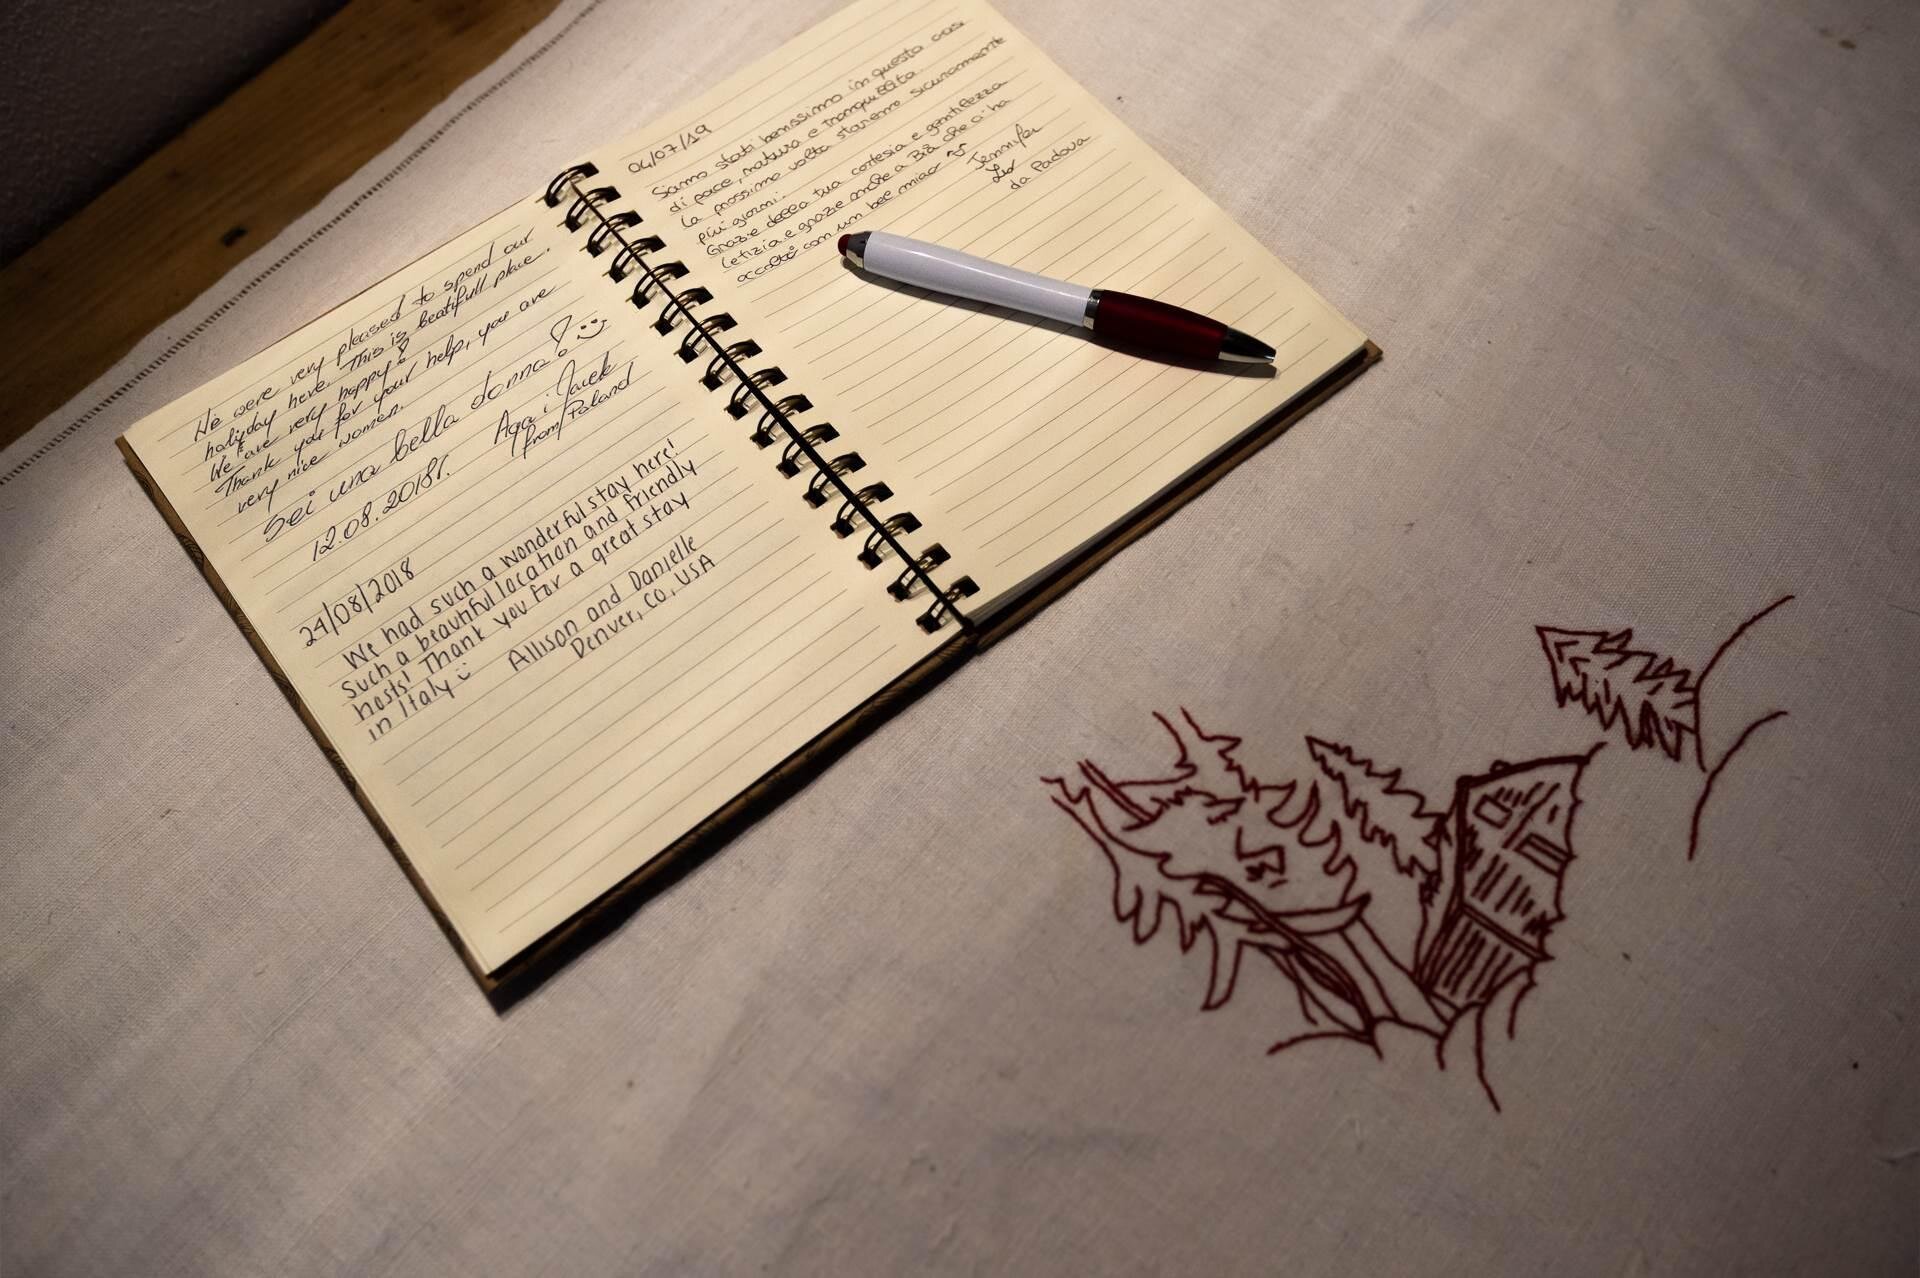 We were very pleased to spend our
holiyday here. This is beatifull place.
We are very happy!
Thank you for your help, you are
very nice women.
Sei una bella donna! :)
12.08.2018r. Aga i Jacek
from Poland
24/08/2018
We had such a wonderful stay here!
Such a beautiful location and friendly
hosts! Thank you for a great stay
in Italy :)
Allison and Danielle
Denver, CO, USA
04/07/19
Siamo stati benissimo in questa oasi
di pace, natura e tranquillità.
La prossima volta staremo sicuramente
più giorni.
Grazie della tua cortesia e gentilezza
Letizia e grazie anche a Bià che ci ha
accolto con un bel miao
Jennifer
da Padova